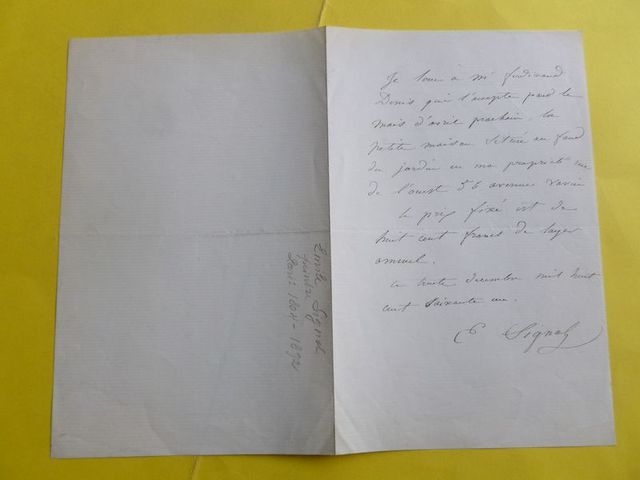 Je loue à Mr ferdinand
Denis qui l'accepte pour le
mois d'avril prochain, la
petite maison située au fond
du jardin en ma propriété rue
de l'ouest 56 avenue
le prix fixé est de
huit cent francs de loyer
annuel.
ce trente decembre mil huit
cent soixante un.
E Signol
Emile Signol
peintre
Paris 1804-1892